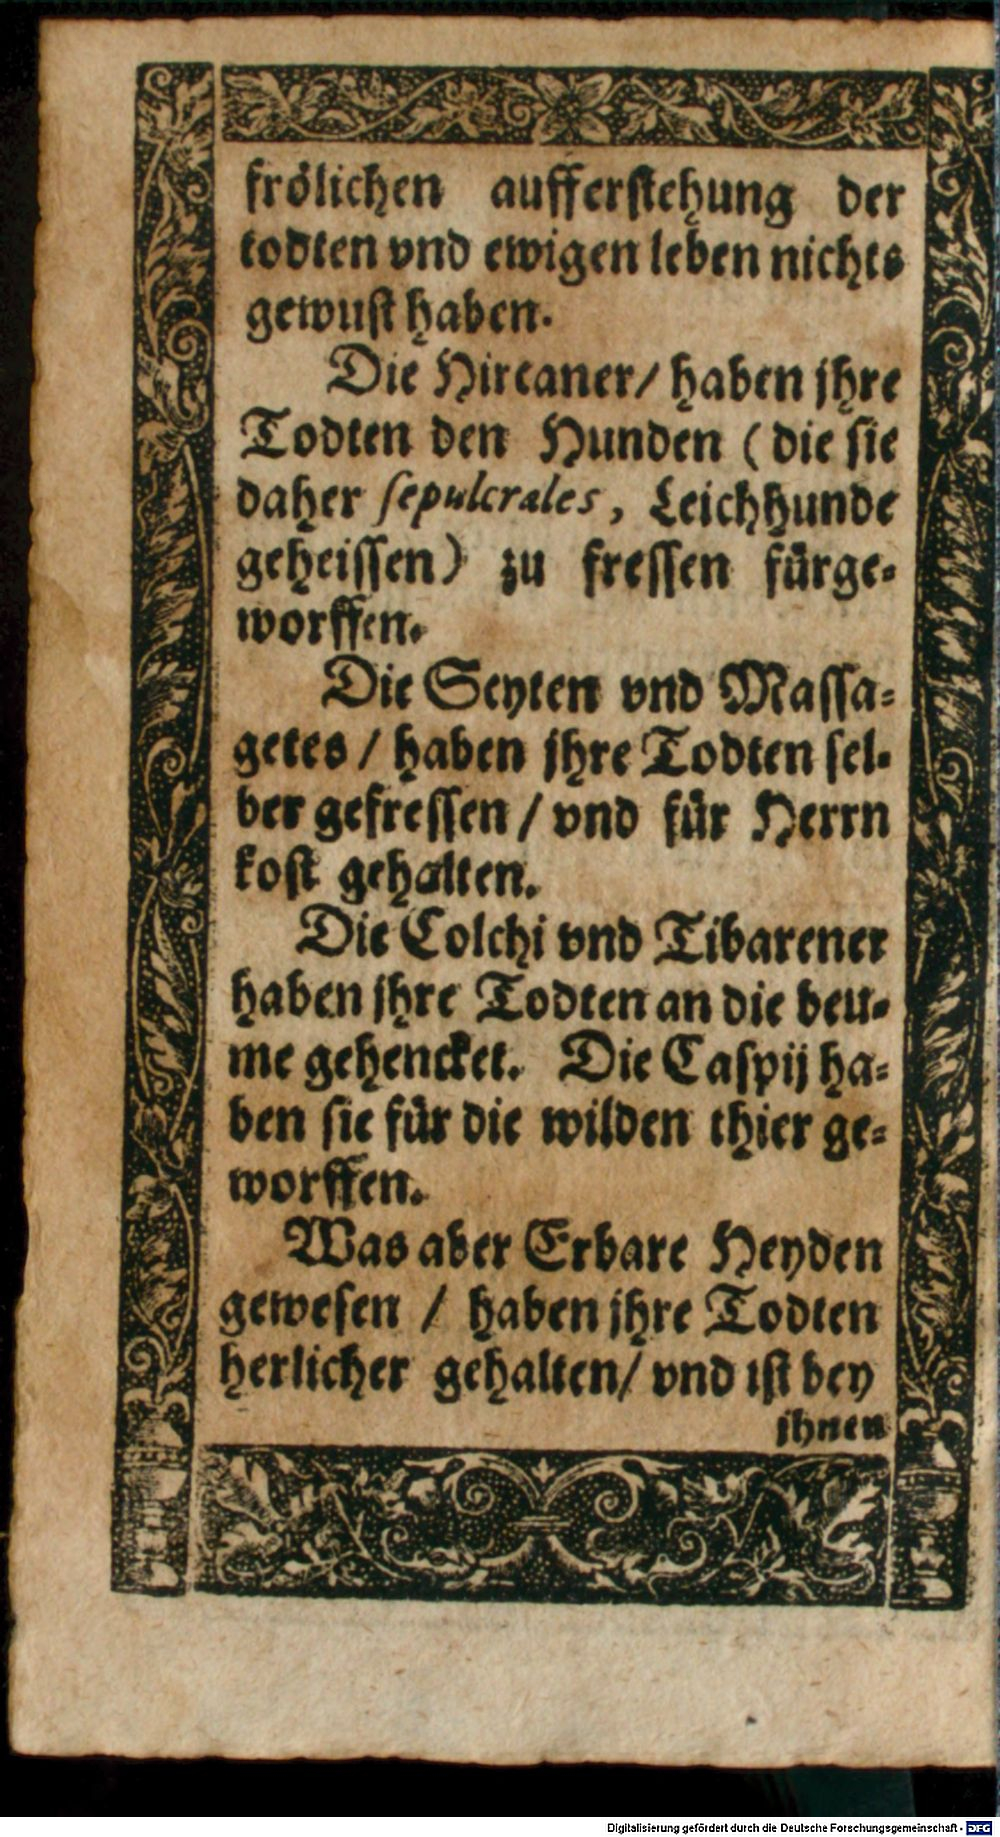 frölichen aufferstehung der
todten vnd ewigen leben nichts
gewust haben.
Die Hircaner/ haben jhre
Todten den Hunden (die sie
daher sepulcrales, Leichhunde
geheissen) zu fressen fürge-
worffen.
Die Scyten vnd Massa-
getes / haben jhre Todten sel-
ber gefressen / vnd für Herrn
kost gehalten.
Die Colchi vnd Tibarener
haben jhre Todten an die beu-
me gehencket. Die Caspij ha-
ben sie für die wilden thier ge-
worffen.
Was aber Erbare Heyden
gewesen / haben jhre Todten
herlicher gehalten/ vnd ist bey
jhnen
Digitalisierung gefördert durch die Deutsche Forschungsgemeinschaft - DFG